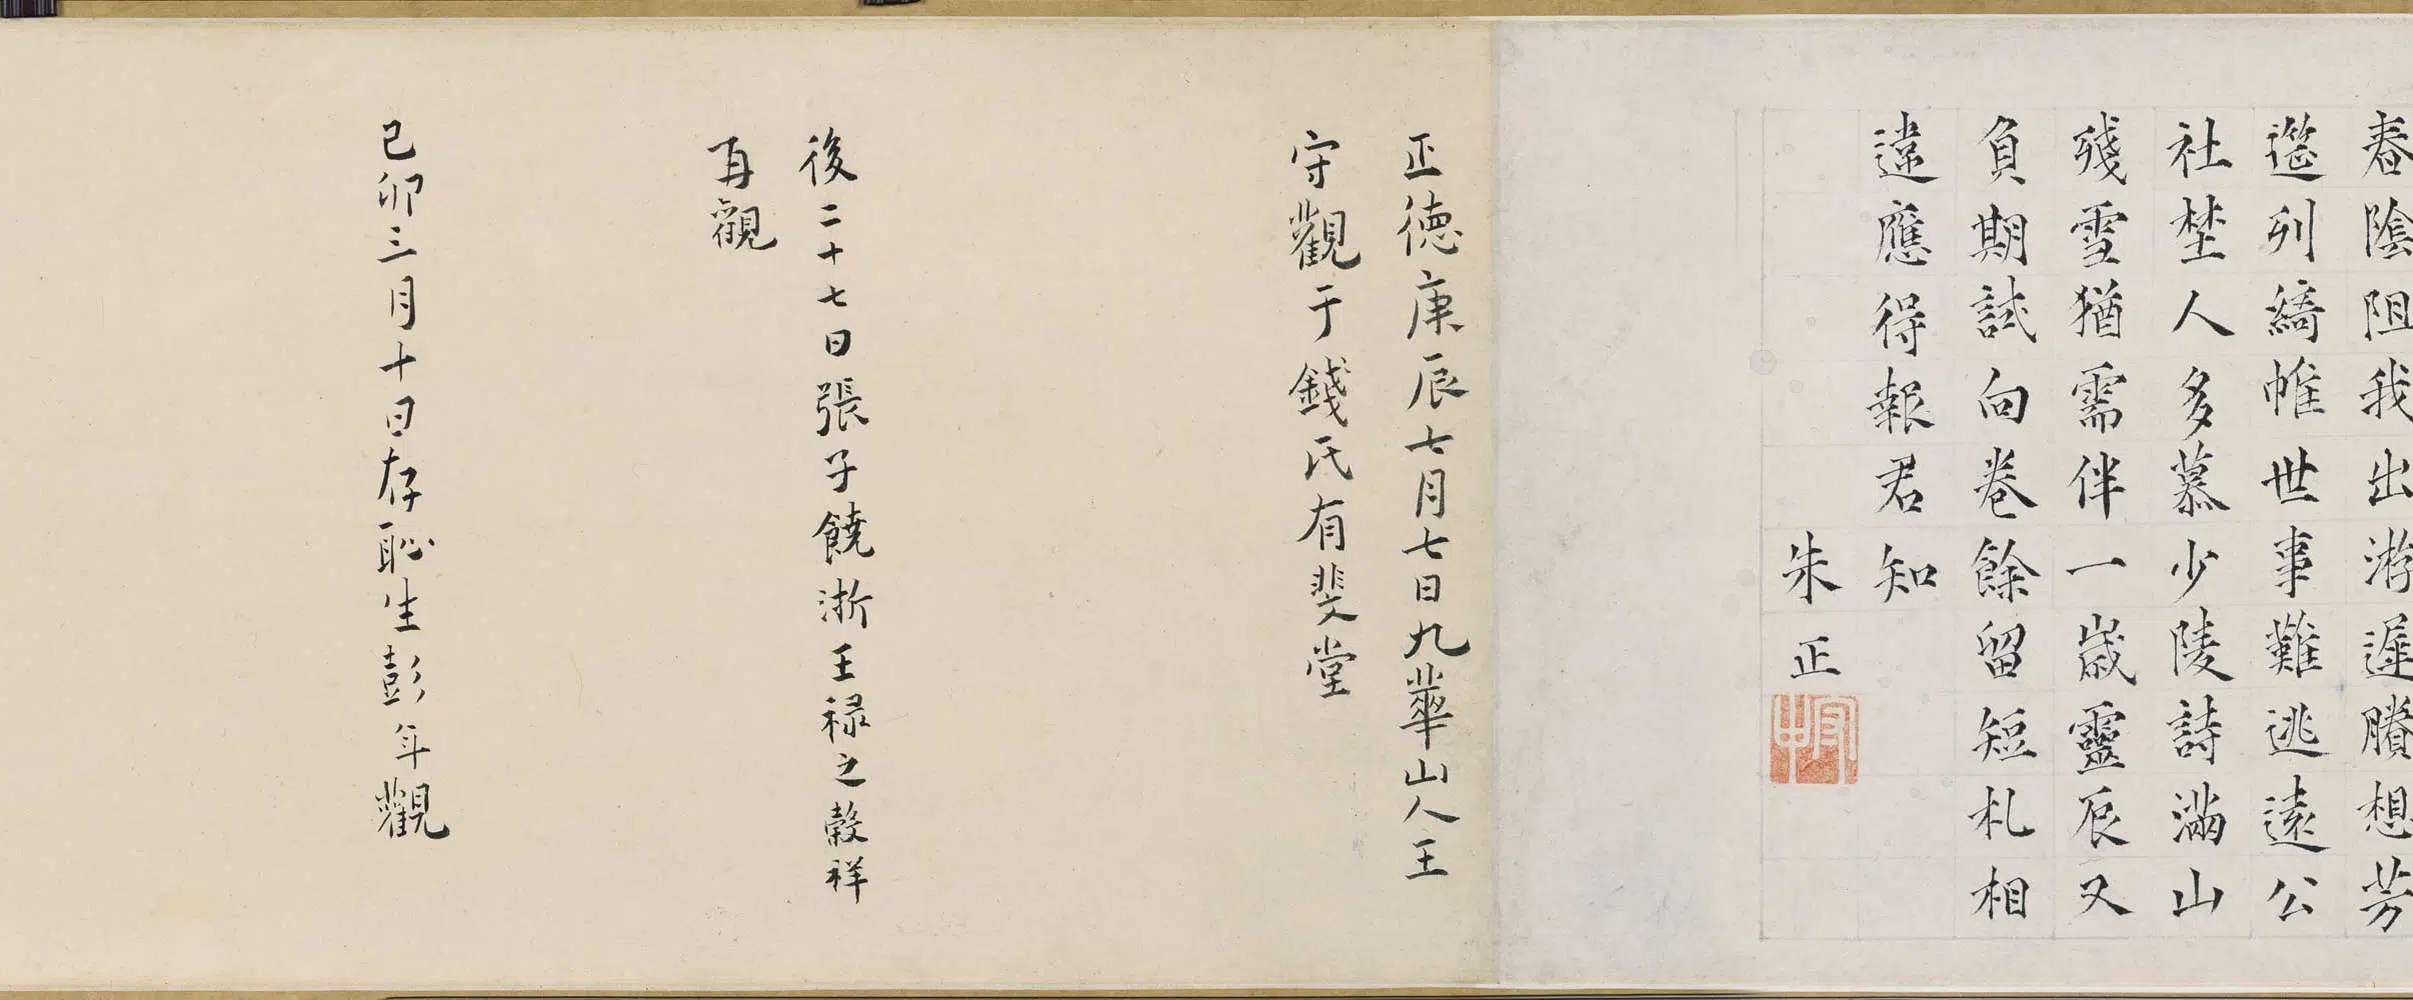 春陰阻我出游遲賸想芳
筵列綺帷世事難逃遠公
社埜人多慕少陵詩滿山
殘雪猶需伴一歲靈辰又
負期試向卷餘留短札相
違應得報君知
朱正
守中
正德庚辰七月七日九華山人王
守觀于錢氏有斐堂
後二十七日張子饒浙王祿之穀祥
再觀
己卯三月十日存恥生彭年觀